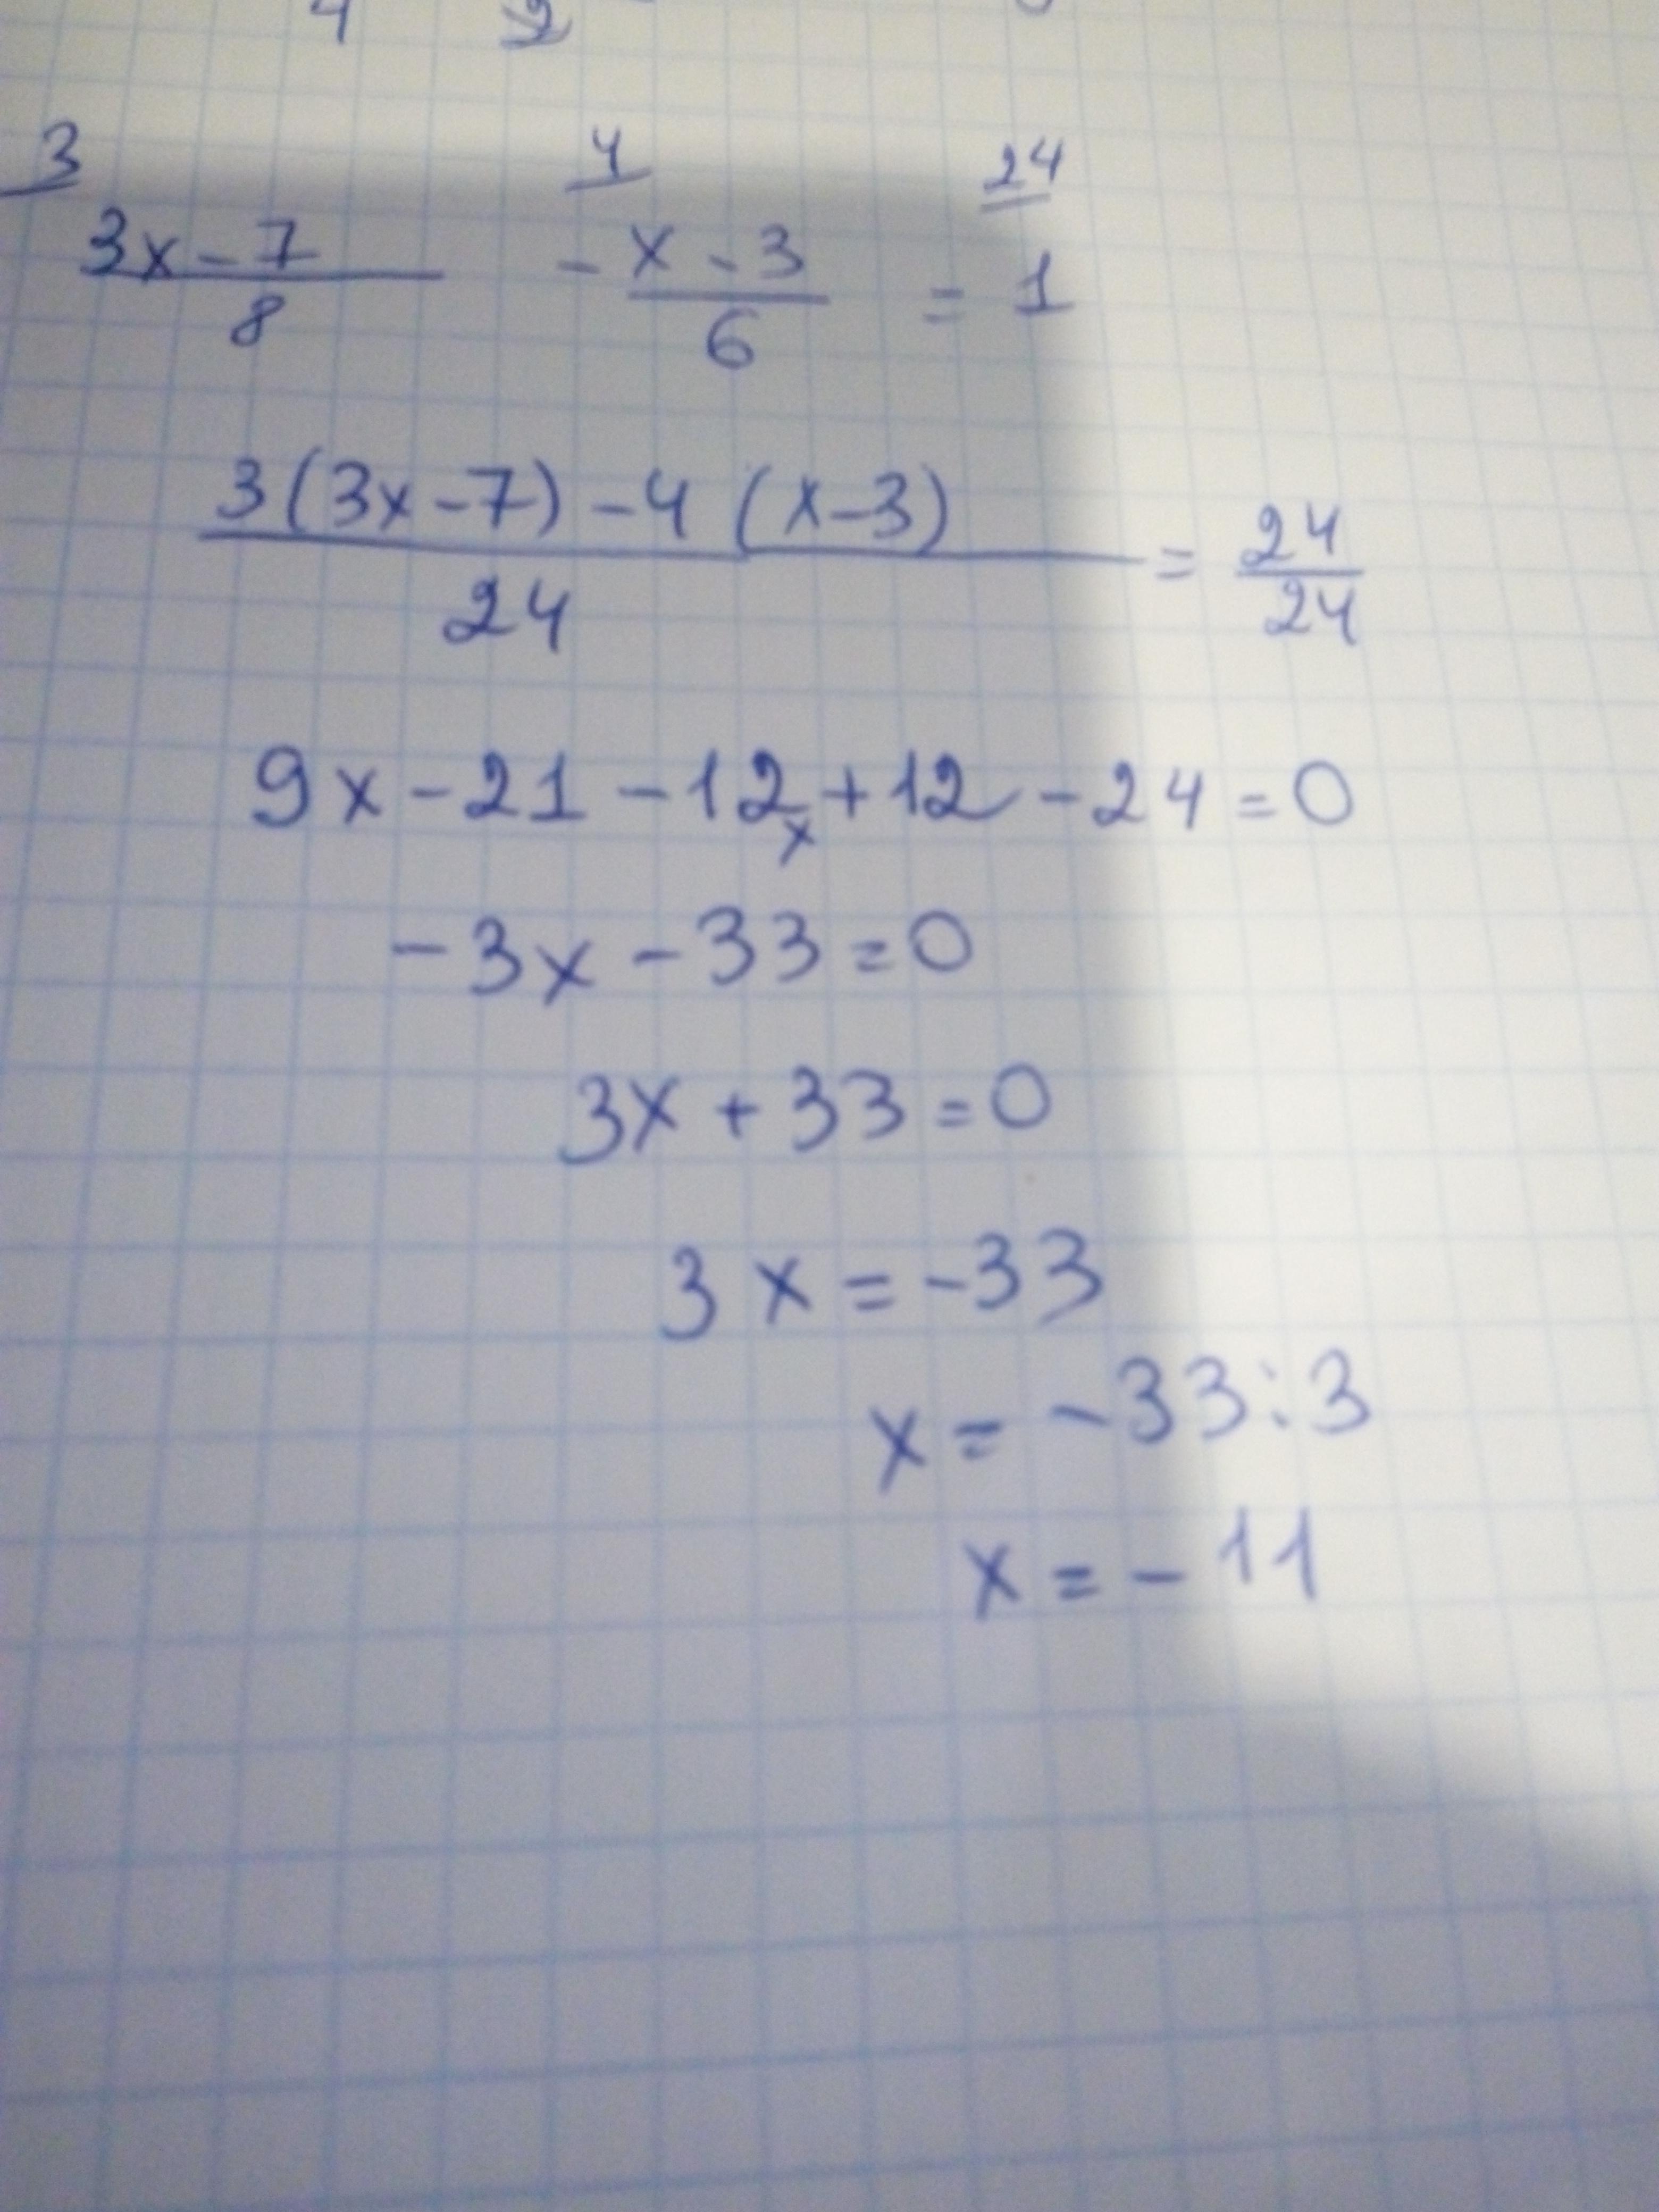 4 2
3 4 24
3x-7 / 8 - x-3 / 6 = 1
3(3x-7)-4(x-3) / 24 = 24 / 24
9x-21-12x+12-24=0
-3x-33=0
3x+33=0
3x=-33
x=-33:3
x=-11